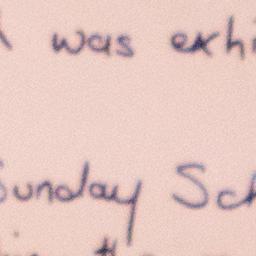 was exhi
Sunday Sch